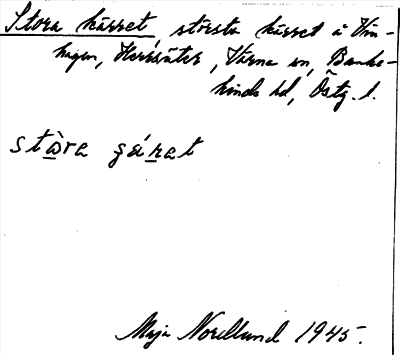 Stora kärret, största kärret å Vin-
hagen, Herrsäter, Värna sn, Banke-
kinds hd, Östg. l.
stòra ɕǽret
Maja Nordlund 1945.